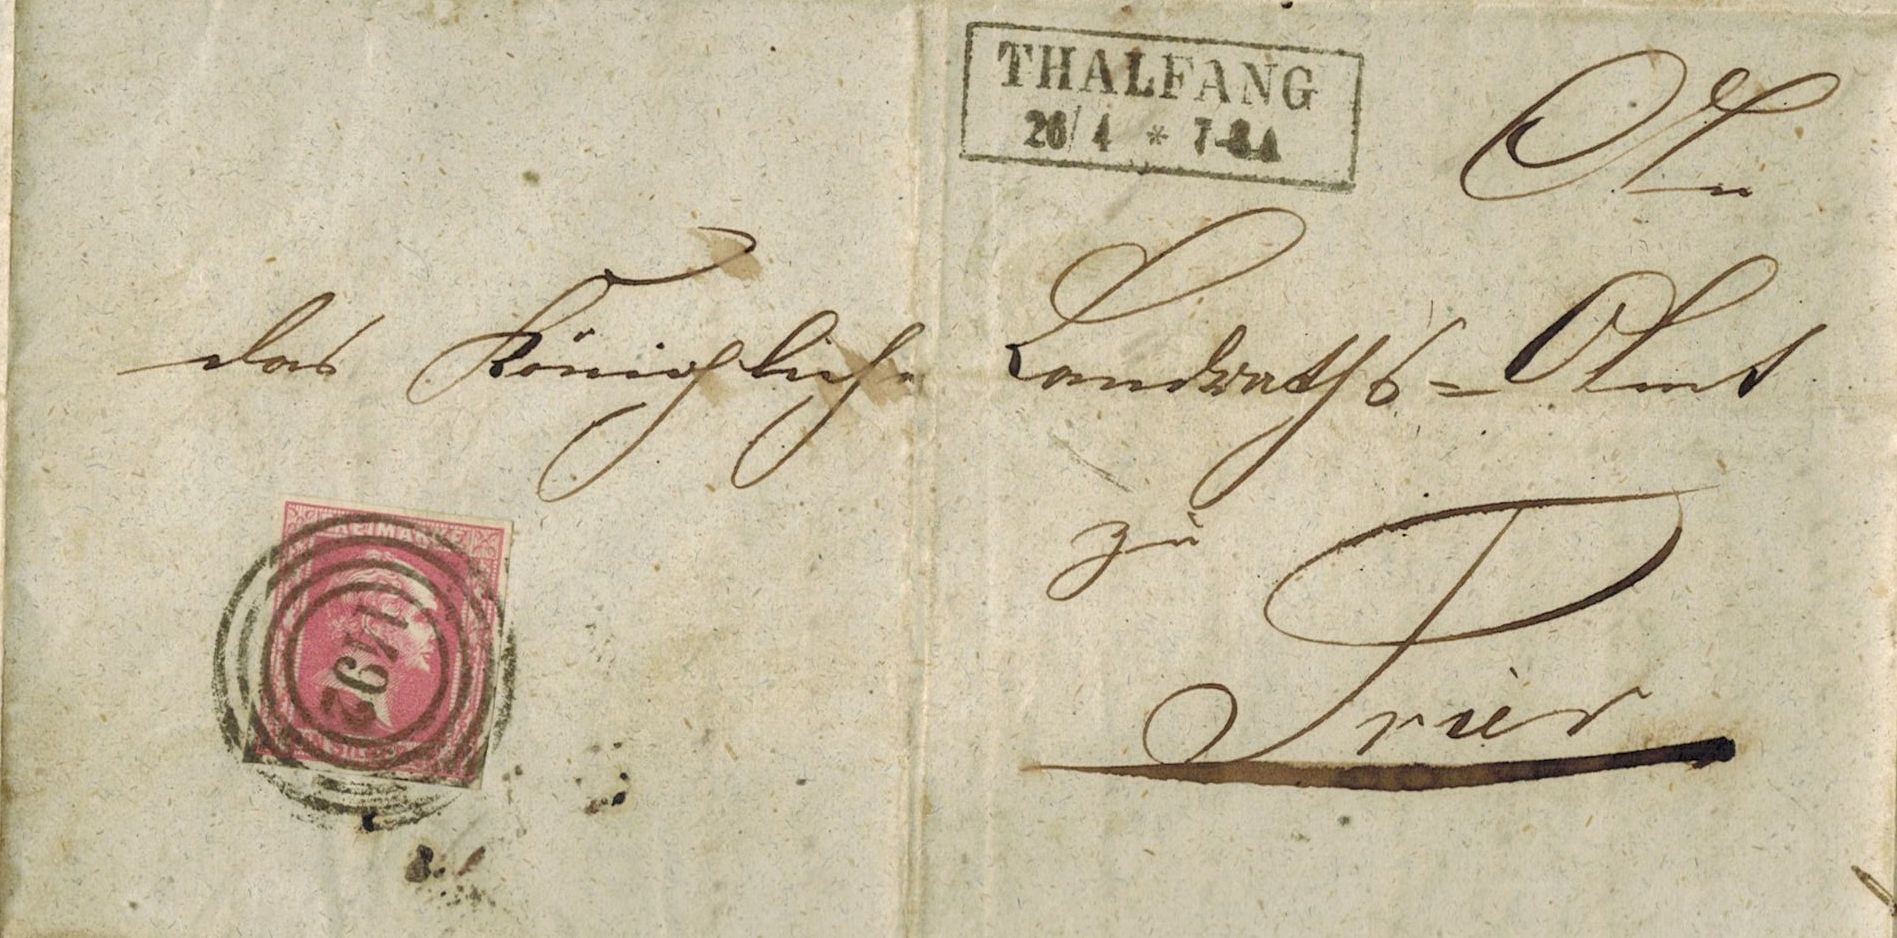 THALFANG
26/4 * 7-8 A
An
das Königliche Landraths=Amt
zu
Trier
FREIMARKE
1492